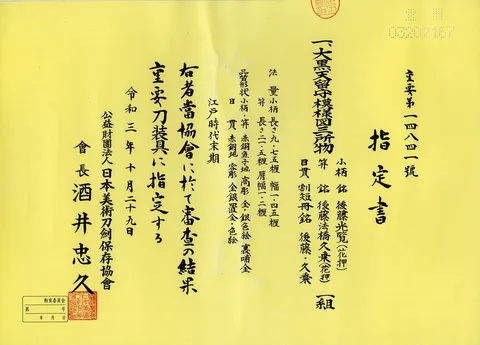 重要第一四八四一號
指定書
一、大黒天留守模様図三所物
小柄 銘 後藤光覧(花押)
笄 銘 後藤法橋久乗(花押)
目貫 割短冊銘 後藤・久乗
一組
法量 小柄 長さ九・七五糎 幅一・四五糎
笄 長さ二一・五糎 肩幅一・二糎
品質形状 小柄・笄 赤銅魚子地 高彫 金・銀色絵 裏哺金
目貫 赤銅地 容彫 金銀置金・色絵
江戸時代末期
右者當協會に於て審査の結果
重要刀装具に指定する
令和三年十月二十九日
公益財団法人 日本美術刀剣保存協會
會長 酒井忠久
03202167
年 月 日